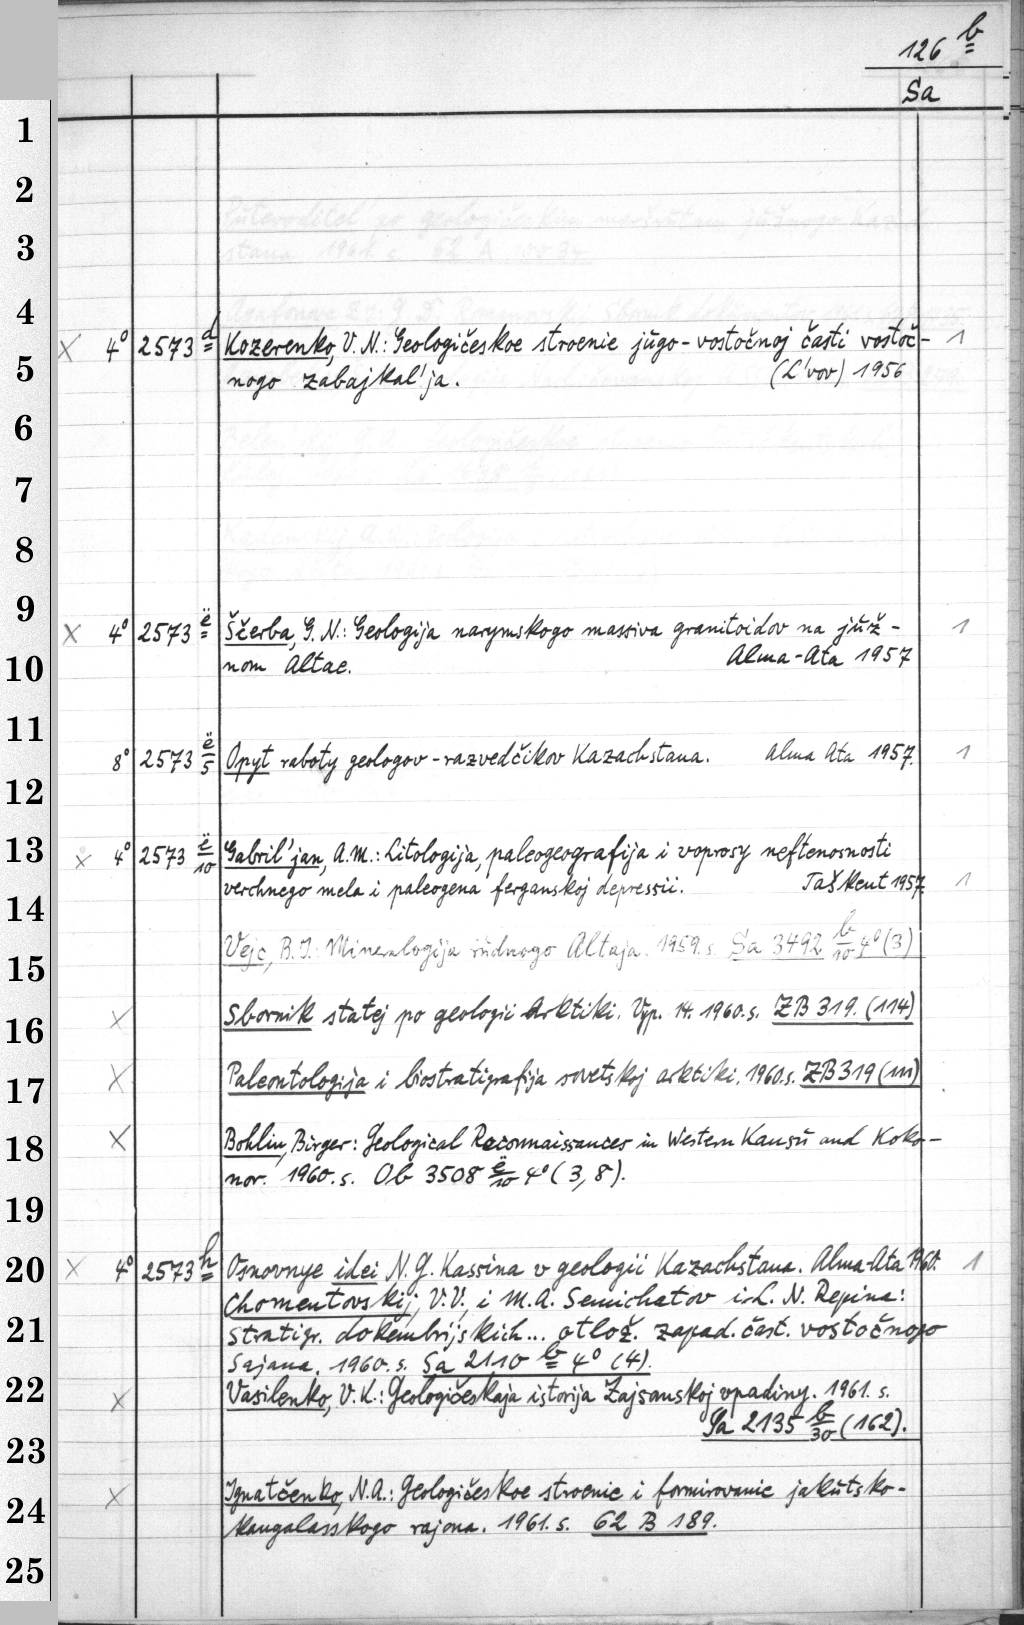 126 b
Sa
1
2
3
4
X 4° 2573 d Kozerenko, V. N.: Geologičeskoe stroenie jugo-vostočnoj časti vostoč- 1
5
nogo zabajkal'ja. (L'vov) 1956
6
7
8
9
X 4° 2573 ë Ščerba, G. N.: Geologija narymskogo massiva granitoidov na juž- 1
10
nom Altae. Alma-Ata 1957
11
8° 2573 ë/5 Opyt raboty geologov-razvedčikov Kazachstana. Alma Ata 1957. 1
12
13
X 4° 2573 ë/10 Gabril'jan, A.M.: Litologija, paleogeografija i voprosy neftenosnosti
verchnego mela i paleogena ferganskoj depressii. Taškent 1957. 1
14
Vejc, B.I.: Mineralogija rudnogo Altaja. 1959. s. Sa 3492 b/10 4° (3)
15
X Sbornik statej po geologii Arktiki. Vyp. 14. 1960. s. ZB 319. (114)
16
X Paleontologija i biostratigrafija sovetskoj arktiki. 1960. s. ZB 319 (111)
17
X Bohlin, Birger: Geological Reconnaissances in Western Kansu and Koko-
18
nor. 1960. s. Ob 3508 ë/10 4° (3, 8).
19
X 4° 2573 h Osnovnye idei N. G. Kassina v geologii Kazachstana. Alma-Ata 1960. 1
20
Chomentovskij, V. V., i M. A. Semichatov i L. N. Repina:
21
Stratigr. dokembrijskich... otlož. zapad. čast. vostočnogo
Sajana. 1960. s. Sa 2110 b 4° (4).
22
X Vasilenko, V. K.: Geologičeskaja istorija Zajsanskoj vpadiny. 1961. s.
Sa 2135 b/30 (162).
23
X Ignatčenko, N.A.: Geologičeskoe stroenie i formirovanie jakutsko-
24
kangalasskogo rajona. 1961. s. 62 B 189.
25